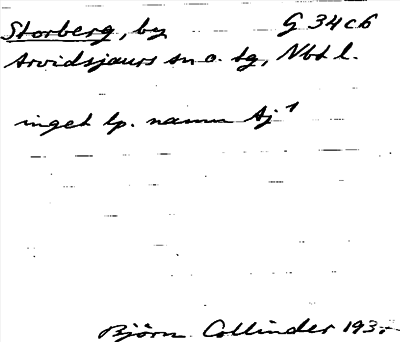 Storberg, by G 34 c 6
Arvidsjaurs sn o. tg, Nbt l.
inget lp. namn Aj¹
Björn Collinder 193